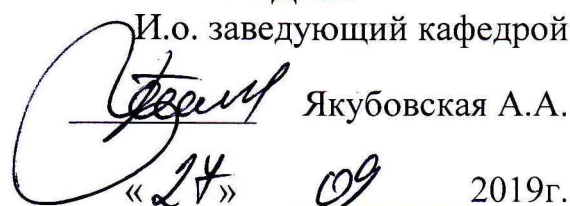 И.о. заведующий кафедрой
Якубовская А.А.
«27» 09 2019г.